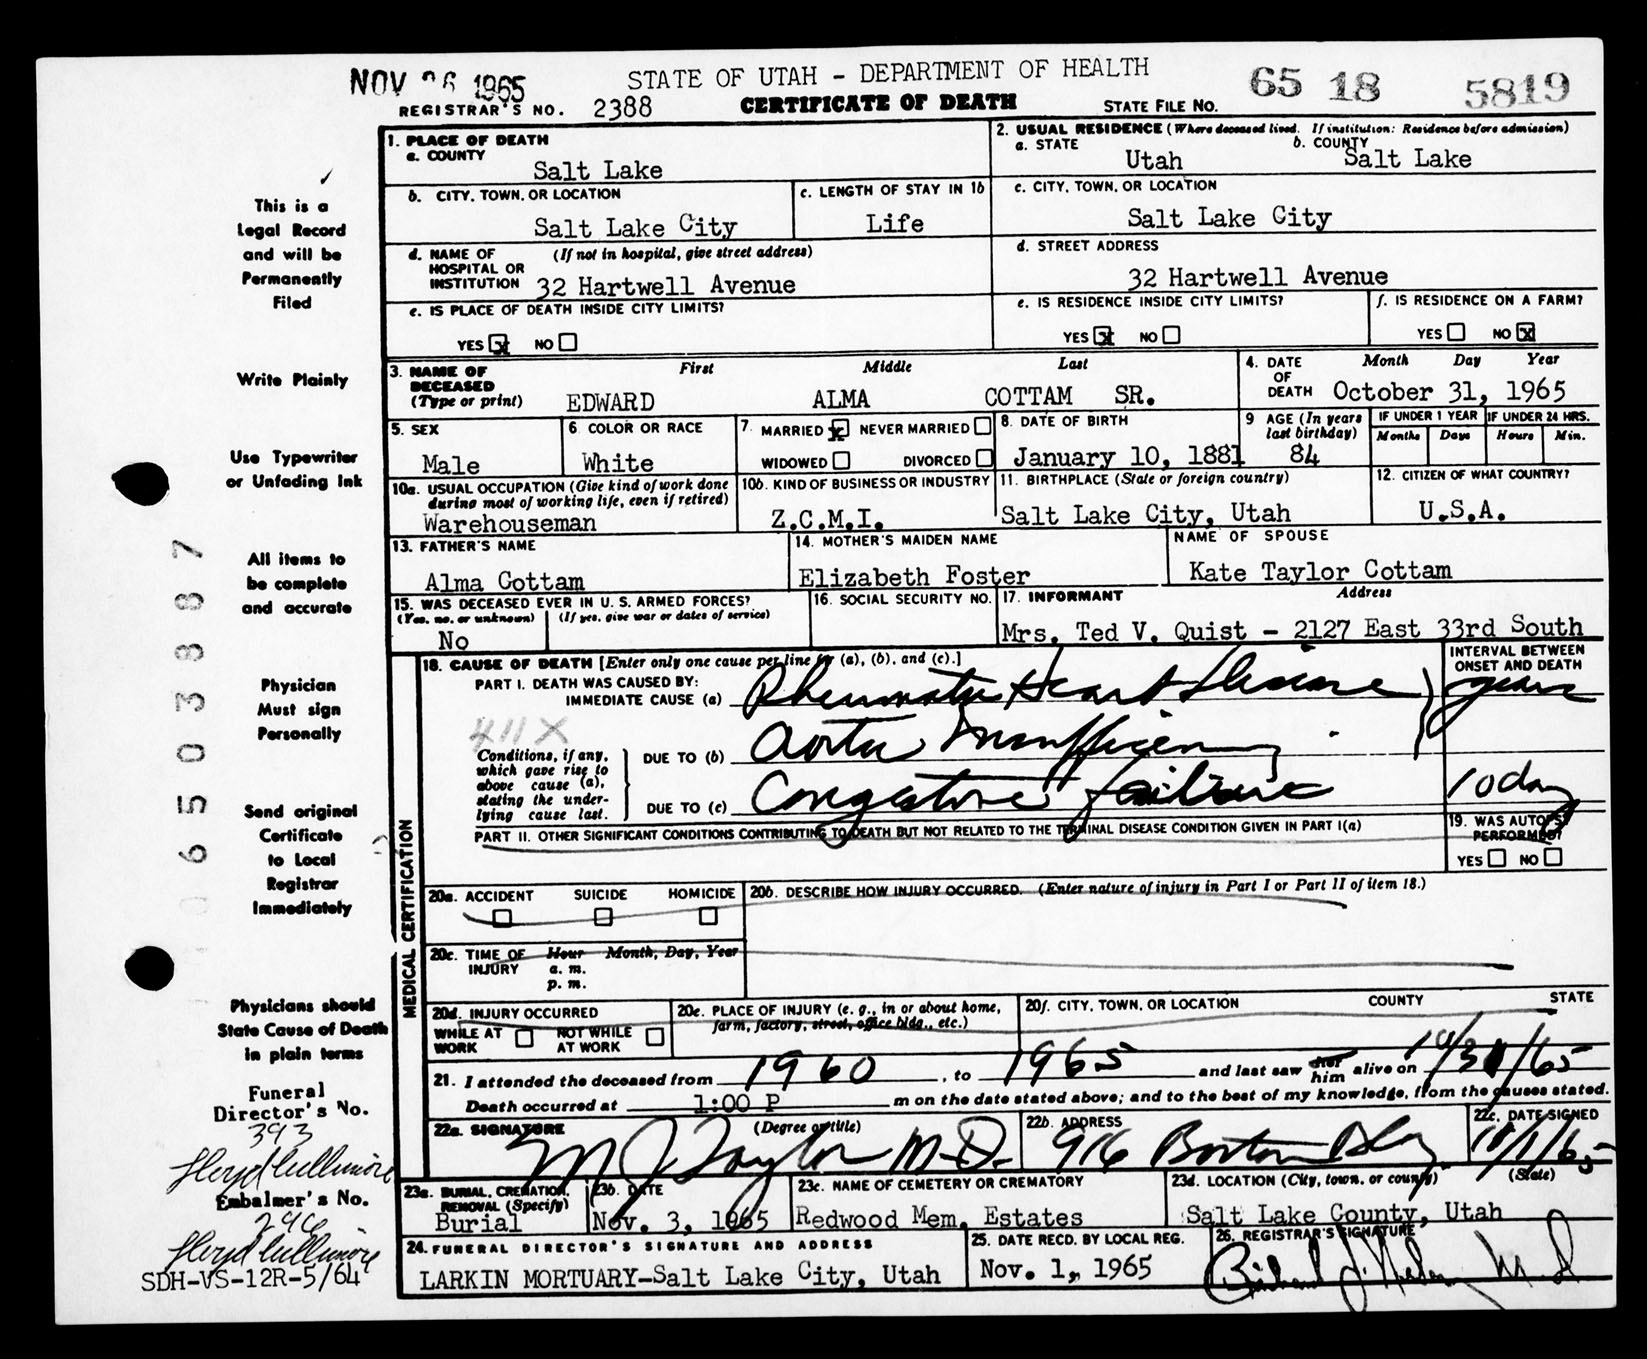 NOV 26 1965
STATE OF UTAH - DEPARTMENT OF HEALTH
65 18 5819
REGISTRAR'S NO. 2388 CERTIFICATE OF DEATH STATE FILE NO.
This is a
Legal Record
and will be
Permanently
Filed
Write Plainly
Use Typewriter
or Unfading Ink
All items to
be complete
and accurate
Physician
Must sign
Personally
Send original
Certificate
to Local
Registrar
Immediately
Physicians should
State Cause of Death
in plain terms
Funeral
Director's No.
393
Floyd Cullimore
Embalmer's No.
296
Floyd Cullimore
SDH-VS-12R-5/64
0650388 7
1. PLACE OF DEATH
a. COUNTY
Salt Lake
2. USUAL RESIDENCE (Where deceased lived. If institution: Residence before admission)
a. STATE b. COUNTY
Utah Salt Lake
b. CITY, TOWN, OR LOCATION
Salt Lake City
c. LENGTH OF STAY IN 1b
Life
c. CITY, TOWN, OR LOCATION
Salt Lake City
d. NAME OF (If not in hospital, give street address)
HOSPITAL OR
INSTITUTION 32 Hartwell Avenue
d. STREET ADDRESS
32 Hartwell Avenue
e. IS PLACE OF DEATH INSIDE CITY LIMITS?
YES x NO
e. IS RESIDENCE INSIDE CITY LIMITS?
YES x NO
f. IS RESIDENCE ON A FARM?
YES NO x
3. NAME OF First Middle Last
DECEASED
(Type or print) EDWARD ALMA COTTAM SR.
4. DATE Month Day Year
OF
DEATH October 31, 1965
5. SEX
Male
6. COLOR OR RACE
White
7. MARRIED x NEVER MARRIED
WIDOWED DIVORCED
8. DATE OF BIRTH
January 10, 1881
9 AGE (In years
last birthday)
84
IF UNDER 1 YEAR IF UNDER 24 HRS.
Months Days Hours Min.
10a. USUAL OCCUPATION (Give kind of work done
during most of working life, even if retired)
Warehouseman
10b. KIND OF BUSINESS OR INDUSTRY
Z.C.M.I.
11. BIRTHPLACE (State or foreign country)
Salt Lake City, Utah
12. CITIZEN OF WHAT COUNTRY?
U.S.A.
13. FATHER'S NAME
Alma Cottam
14. MOTHER'S MAIDEN NAME
Elizabeth Foster
NAME OF SPOUSE
Kate Taylor Cottam
15. WAS DECEASED EVER IN U. S. ARMED FORCES?
(Yes, no, or unknown) (If yes, give war or dates of service)
No
16. SOCIAL SECURITY NO.
17. INFORMANT Address
Mrs. Ted V. Quist - 2127 East 33rd South
MEDICAL CERTIFICATION
18. CAUSE OF DEATH [Enter only one cause per line for (a), (b), and (c).]
INTERVAL BETWEEN
ONSET AND DEATH
PART I. DEATH WAS CAUSED BY:
IMMEDIATE CAUSE (a) Rheumatic Heart Disease years
411X
Conditions, if any,
which gave rise to
above cause (a),
stating the under-
lying cause last.
DUE TO (b) Aortic Insufficiency
DUE TO (c) Congestive failure 10 day
PART II. OTHER SIGNIFICANT CONDITIONS CONTRIBUTING TO DEATH BUT NOT RELATED TO THE TERMINAL DISEASE CONDITION GIVEN IN PART I(a)
19. WAS AUTOPSY
PERFORMED?
YES NO
20a. ACCIDENT SUICIDE HOMICIDE
20b. DESCRIBE HOW INJURY OCCURRED. (Enter nature of injury in Part I or Part II of item 18.)
20c. TIME OF Hour Month, Day, Year
INJURY a. m.
p. m.
20d. INJURY OCCURRED
WHILE AT NOT WHILE
WORK AT WORK
20e. PLACE OF INJURY (e. g., in or about home,
farm, factory, street, office bldg., etc.)
20f. CITY, TOWN, OR LOCATION COUNTY STATE
21. I attended the deceased from 1960, to 1965 and last saw her him alive on 10/31/65
Death occurred at 1:00 P m on the date stated above; and to the best of my knowledge, from the causes stated.
22a. SIGNATURE (Degree or title)
M J Taylor M.D.
22b. ADDRESS
916 Boston Bldg
22c. DATE SIGNED
11/1/65
23a. BURIAL, CREMATION,
REMOVAL (Specify)
Burial
23b. DATE
Nov. 3, 1965
23c. NAME OF CEMETERY OR CREMATORY
Redwood Mem. Estates
23d. LOCATION (City, town, or county) (State)
Salt Lake County, Utah
24. FUNERAL DIRECTOR'S SIGNATURE AND ADDRESS
LARKIN MORTUARY-Salt Lake City, Utah
25. DATE RECD. BY LOCAL REG.
Nov. 1, 1965
26. REGISTRAR'S SIGNATURE